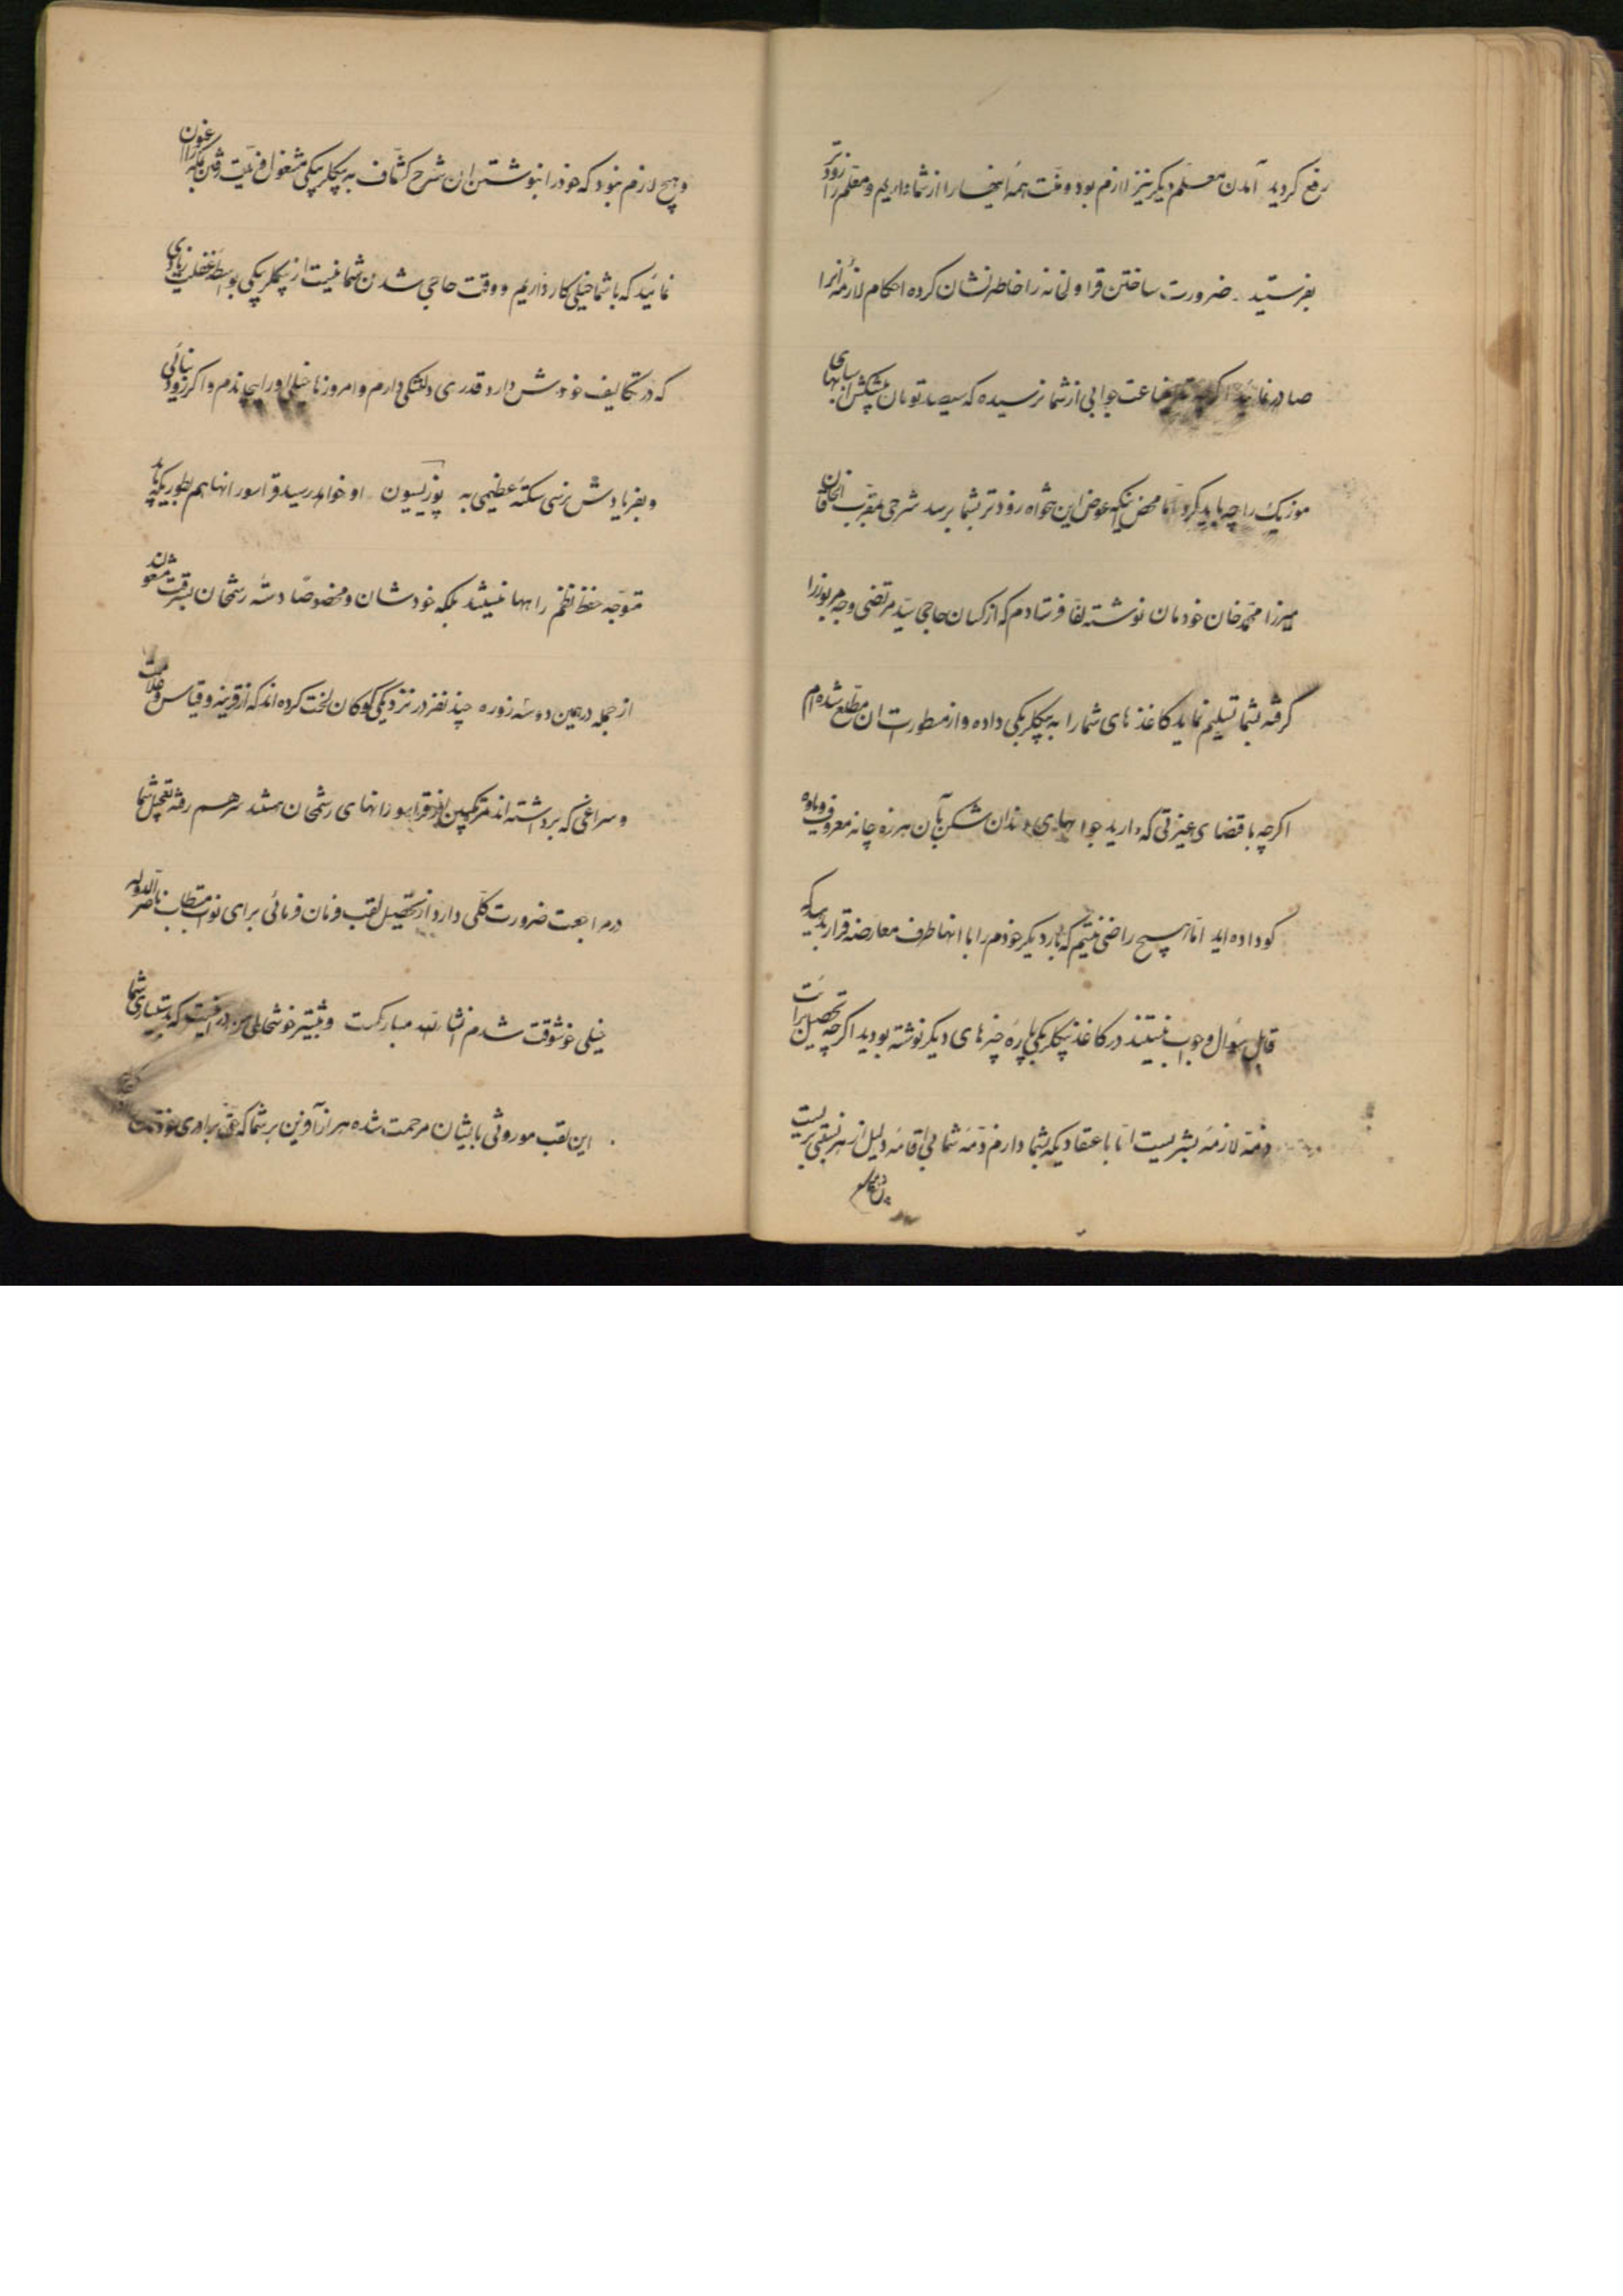 رفع گردید آمدن معلم دیگر نیز لازم بود و منت همهٔ اینها را از شما داریم و معلم را زودتر
بفرستید. ضرورت ساختن قراولخانه را خاطرنشان کرده احکام لازمهٔ آنرا
صادر نمائید اگرچه جوابی از شما نرسیده که سیصد تومان پیشکش اسبابهای
موزیک را چه باید کرد اما محض اینکه عوض این تنخواه زودتر بشما برسد شرحی بمقرب الخاقان
میرزا محمد خان خودمان نوشته لفاً فرستادم که از کسان حاجی سید مرتضی وجه مزبور را
گرفته بشما تسلیم نماید کاغذهای شما را به بیگلربیگی داده و از مسطورات آن مطلع شده‌ام
اگرچه باقتضای غیرتی که دارید جوابهای دندان شکن بآن هرزه چانه معروف و یاوه
گو داده‌اید اما هیچ راضی نیستم که بار دیگر خودم را با آنها طرف معارضه قرار بدهید که
قابل سؤال و جواب نیستند در کاغذ بیگلربیگی پاره چیزهای دیگر نوشته بودید اگرچه تحصیل برائت
ذمه لازمهٔ بشریست اما با اعتقادیکه بشما دارم ذمهٔ شما بی اقامهٔ دلیل از هر نسبتی بریست
و هیچ لازم نبود که خود را بنوشتن آن شرح کشاف به بیگلربیگی مشغول
نمائید که با شما خیلی کار داریم و وقت حاجی شدن شما نیست از بیگلربیگی بواسطه غفلت زیادی
که در تکالیف خودش دارد قدری دلتنگی دارم و امروزها خیلی او را پیچاندم و اگر زود نیائی
و بفریادش نرسی سکتهٔ عظیمی به پوزیسیون او خواهد رسید قراسورانها هم بطوریکه باید
متوجه حفظ نظم راهها نیستند بلکه خودشان و مخصوصاً دستهٔ رستمخان بسرقت مشغولند
از جمله در همین دو سه روزه چند نفر در نزدیکی گوگان لخت کرده‌اند که از قرینه و قیاس و علامت
و سراغی که برداشته‌اند مرتکبین از قراسورانهای رستمخان هستند سر هم رفته تعجیل شما
در مراجعت ضرورت کلی دارد از تحصیل لقب و نان و فرمانی برای نواب مستطاب ناصرالدوله
خیلی خوشوقت شدم انشاءالله مبارکست و بیشتر خوشحالی من در اینست که بدستیاری شما
این لقب موروثی بایشان مرحمت شده هزار آفرین بر شما که حق برادری خودتان